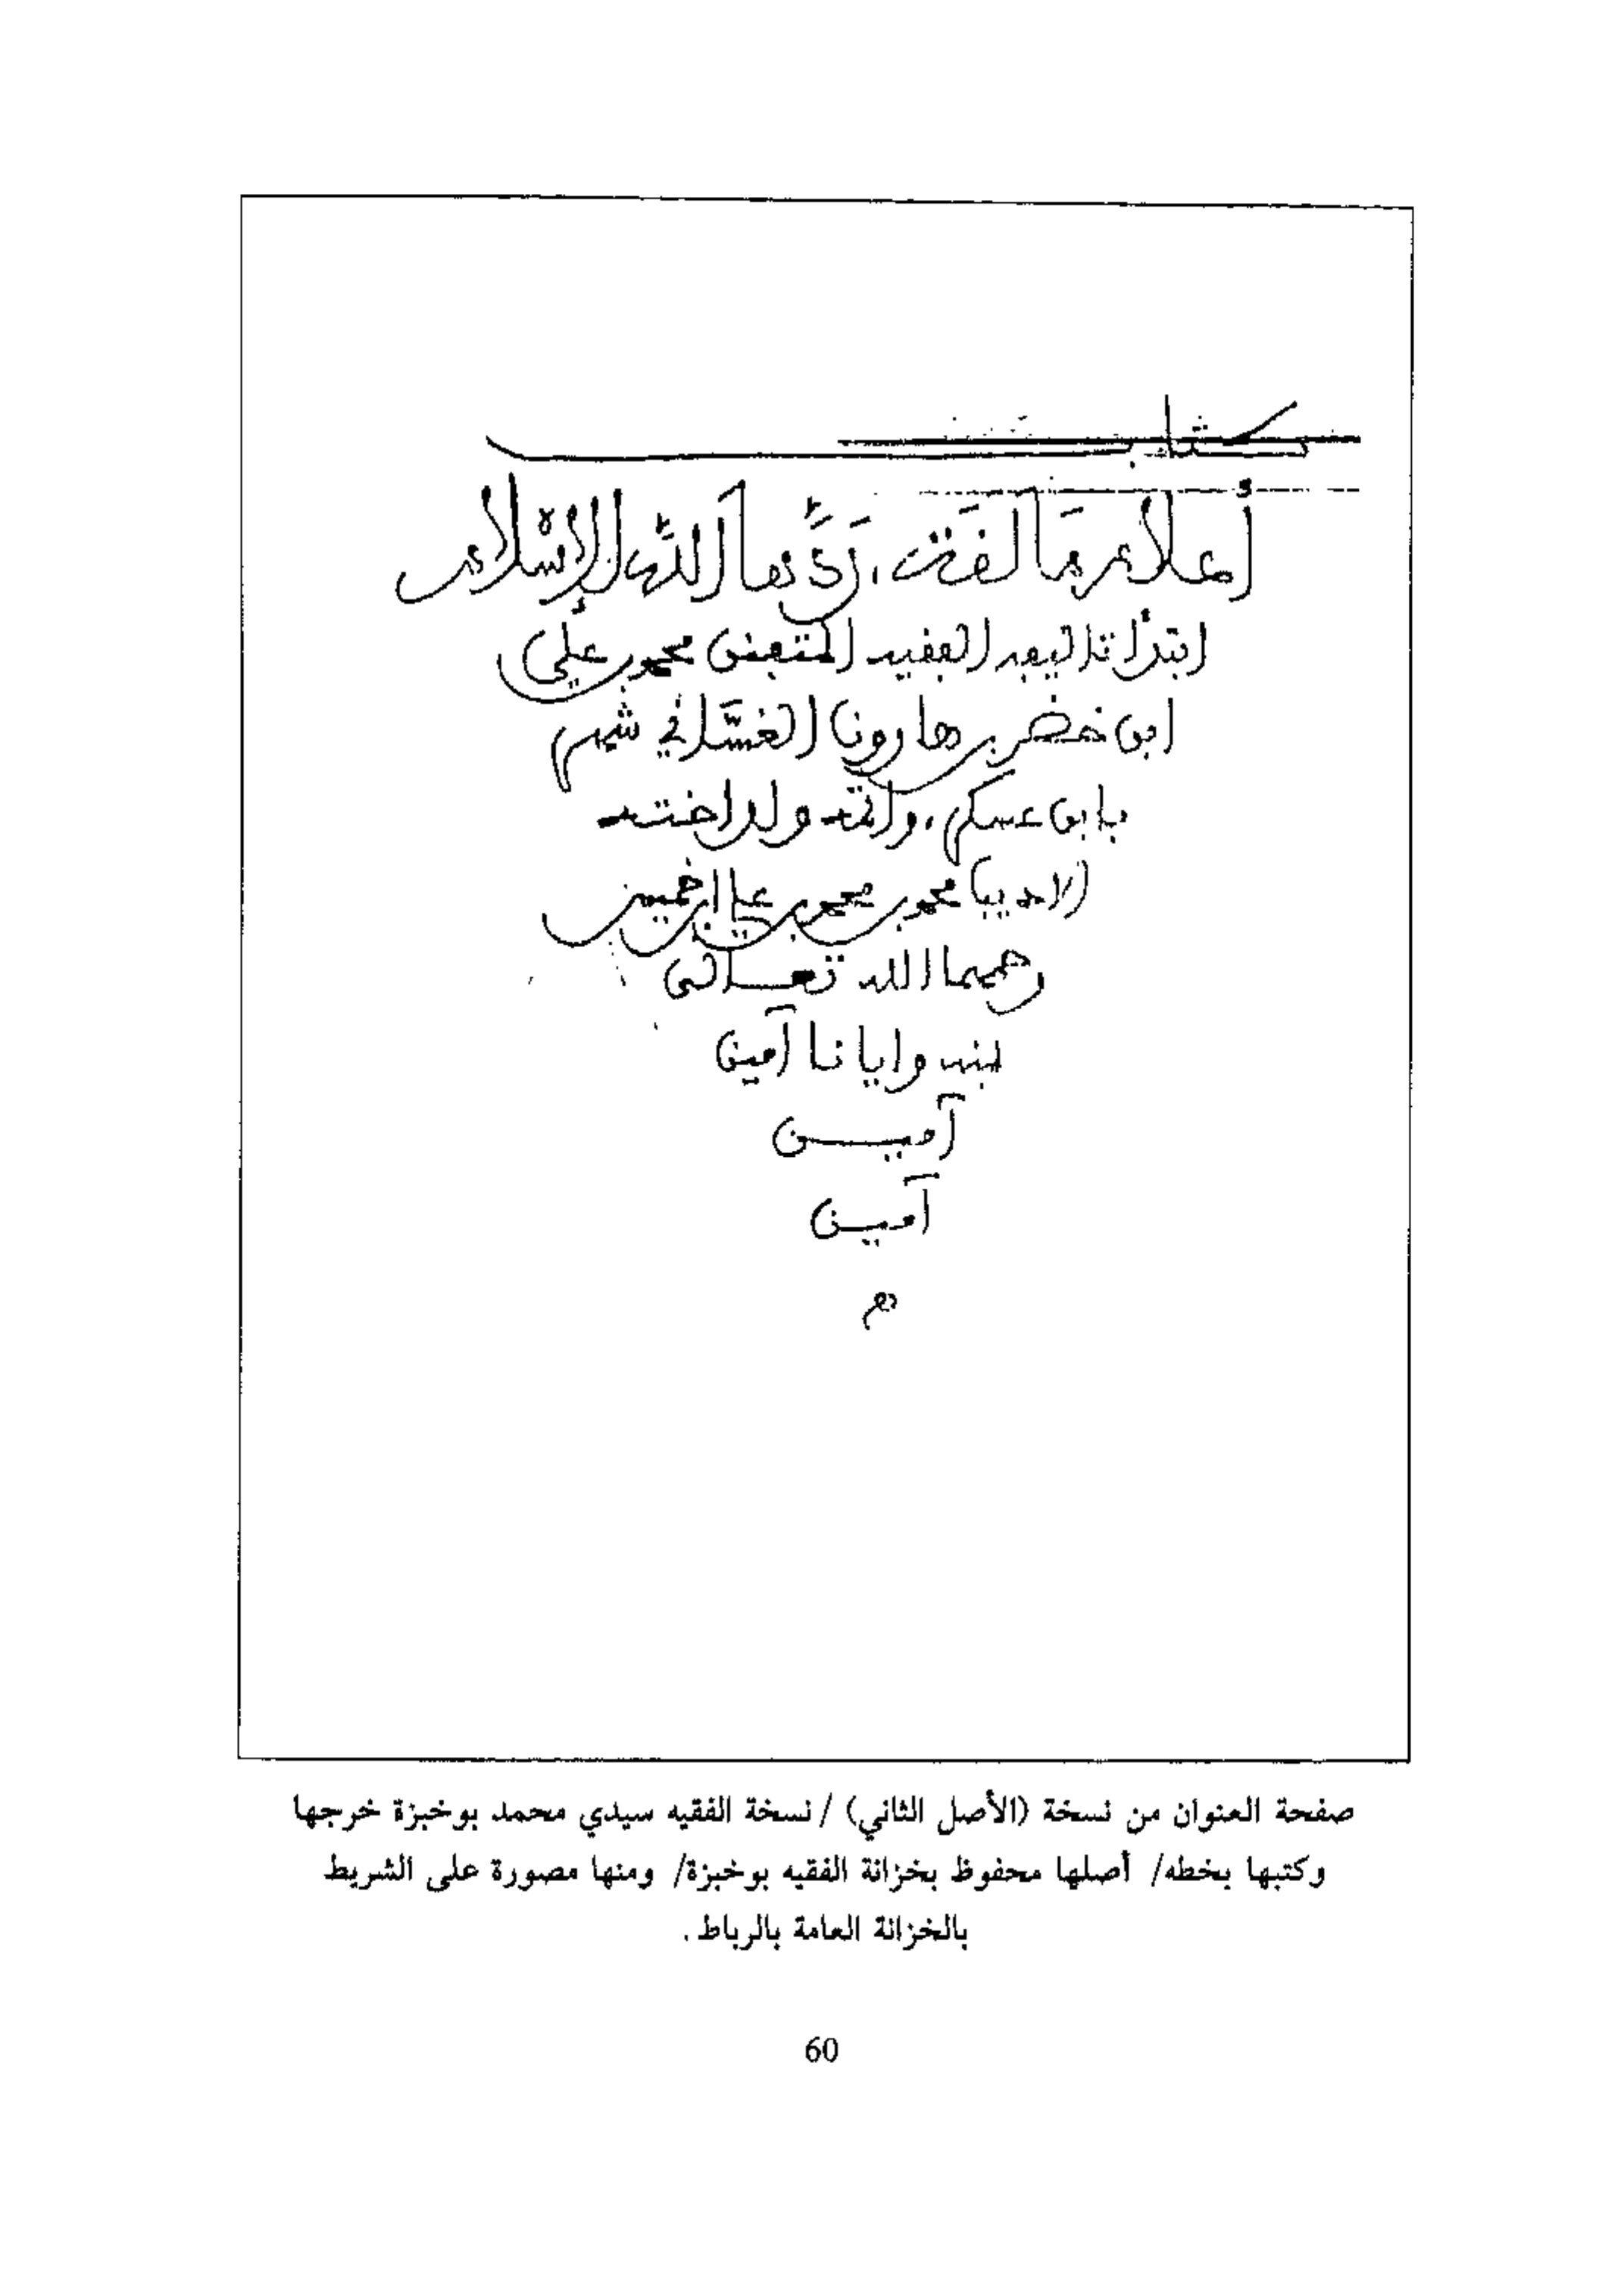 كتاب
أعلام مَالَقَة، رَدَّهَا اللَّهُ لِلإِسْلام
ابتدأ تأليفه الفقيه المتفنن محمد بن علي
ابن خضر بن هارون الغسَّاني شهر
بابن عسكر، وأتمه ولد أخته
الأديب محمد بن محمد بن علي ابن خميس
رحمهما الله تعالى
بمنه وإيانا آمين
آميـن
آميـن
م
صفحة العنوان من نسخة (الأصل الثاني) / نسخة الفقيه سيدي محمد بوخبزة خرجها
وكتبها بخطه/ أصلها محفوظ بخزانة الفقيه بوخبزة/ ومنها مصورة على الشريط
بالخزانة العامة بالرباط.
60